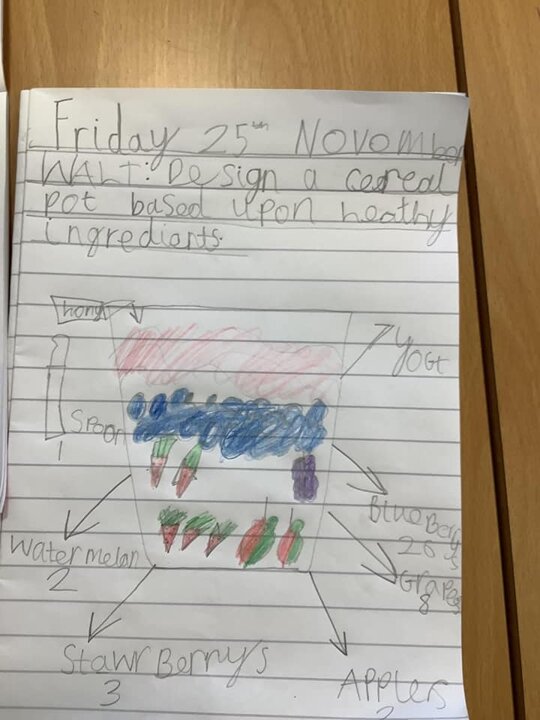 Friday 25th NOVOMber
WALT: Design a cereal
pot based upon heathy
ingrediants.
hony
YOGt
Spoon
1
Blue Berys
20
Watermelon
2
Grapes
8
StawrBerrys
3
APPlers
2